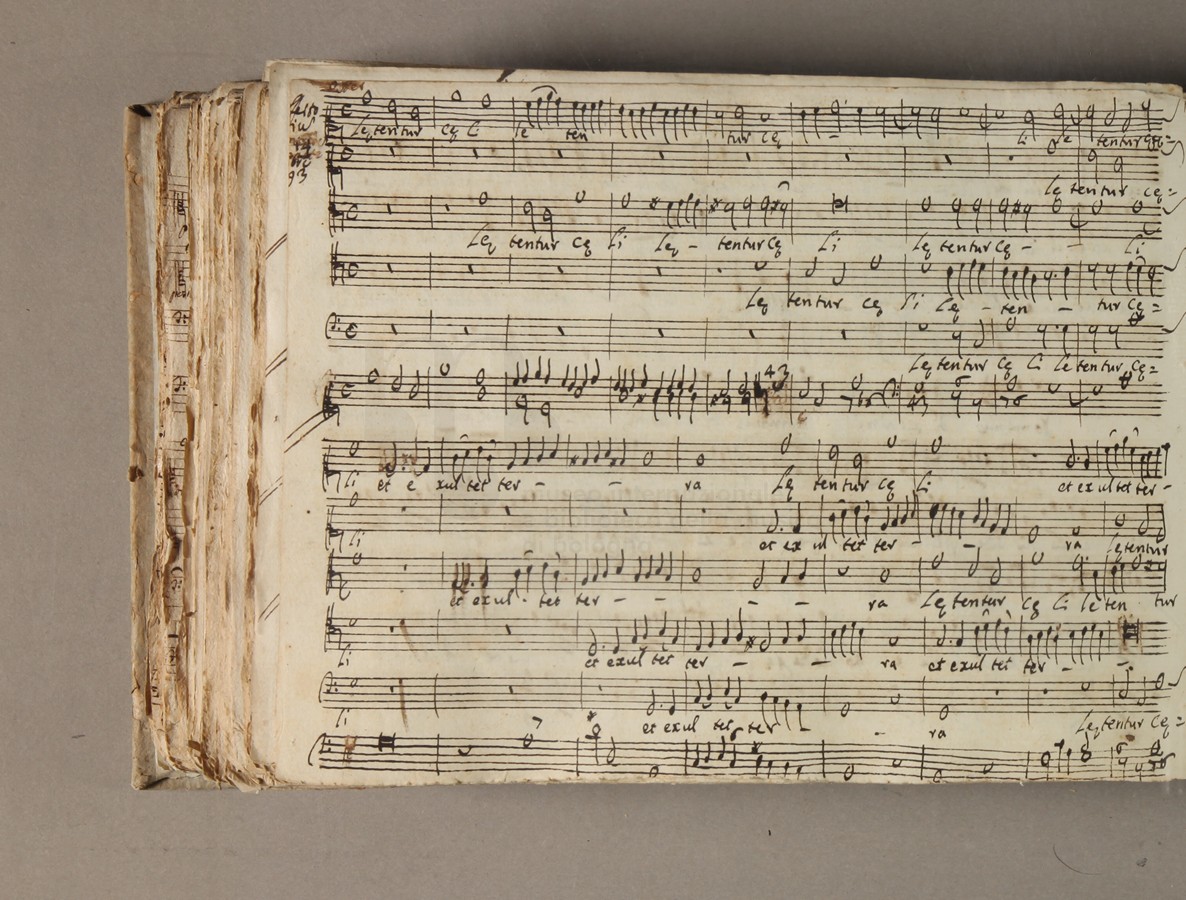 Leꝫ tentur cꝫ li le ten tur cꝫ - li le tentur cꝫ =
le tentur cꝫ =
Leꝫ tentur cꝫ li Leꝫ - tentur cꝫ li Leꝫ tentur cꝫ - li
Leꝫ tentur cꝫ li Leꝫ - ten - tur cꝫ =
Leꝫ tentur cꝫ li le tentur cꝫ =
4 3
li et e xul tet ter - - ra Leꝫ tentur cꝫ li et exultet ter -
li et ex ul tet ter - - ra letentur
et exul - tet ter - - - - ra Leꝫ tentur cꝫ li le ten tur
li et exul tet ter - - ra et exul tet ter - -
li et exul tet ter - - ra Leꝫ tentur cꝫ =